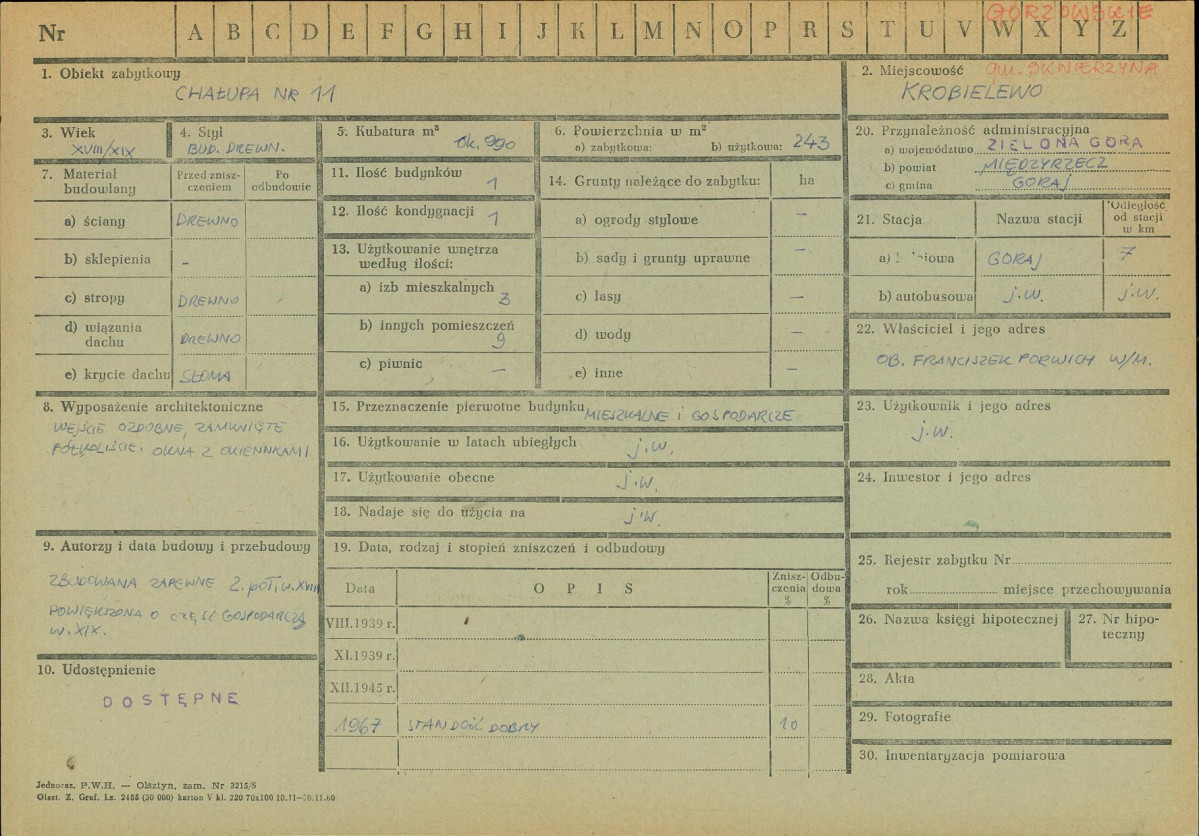 GORZOWSKIE
Nr A B C D E F G H I J K L M N O P R S T U V W X Y Z
1. Obiekt zabytkowy
CHAŁUPA NR 11
2. Miejscowość gm. SKWIERZYNA
KROBIELEWO
3. Wiek
XVIII/XIX
4. Styl
BUD. DREWN.
5. Kubatura m³
ok. 990
6. Powierzchnia w m²
a) zabytkowa: b) użytkowa: 243
20. Przynależność administracyjna
a) województwo ZIELONA GÓRA
b) powiat MIĘDZYRZECZ
c) gmina GORAJ
7. Materiał budowlany
Przed znisz-
czeniem
Po
odbudowie
a) ściany DREWNO
b) sklepienia –
c) stropy DREWNO
d) wiązania
dachu DREWNO
e) krycie dachu SŁOMA
11. Ilość budynków 1
12. Ilość kondygnacji 1
13. Użytkowanie wnętrza
według ilości:
a) izb mieszkalnych 3
b) innych pomieszczeń 9
c) piwnic –
14. Grunty należące do zabytku: ha
a) ogrody stylowe –
b) sady i grunty uprawne –
c) lasy –
d) wody –
e) inne –
21. Stacja Nazwa stacji Odległość
od stacji
w km
a) GORAJ 7
b) autobusowa j.w. j.w.
22. Właściciel i jego adres
OB. FRANCISZEK PORWICH W/M.
8. Wyposażenie architektoniczne
WEJŚCIE OZDOBNE, ZAMKNIĘTE
PÓŁKOLIŚCIE, OKNA Z OKIENNKAMI
15. Przeznaczenie pierwotne budynku MIESZKALNE i GOSPODARCZE
16. Użytkowanie w latach ubiegłych j.w.
17. Użytkowanie obecne j.w.
18. Nadaje się do użycia na j.w.
23. Użytkownik i jego adres
j.w.
24. Inwestor i jego adres
9. Autorzy i data budowy i przebudowy
ZBUDOWANA ZAPEWNE 2. poł. w. XVIII
POWIĘKSZONA O CZĘŚĆ GOSPODARCZĄ
W. XIX.
10. Udostępnienie
DOSTĘPNE
19. Data, rodzaj i stopień zniszczeń i odbudowy
Data OPIS Znisz-
czenia
% Odbu-
dowa
%
VIII.1939 r.
XI.1939 r.
XII.1945 r.
1967 STAN DOŚĆ DOBRY 10
25. Rejestr zabytku Nr
rok miejsce przechowywania
26. Nazwa księgi hipotecznej
27. Nr hipo-
teczny
28. Akta
29. Fotografie
30. Inwentaryzacja pomiarowa
Jednoraz. P.W.H. — Olsztyn, zam. Nr 3215/S
Olszt. Z. Graf. Lz. 2485 (30 000) karton V kl. 220 70x100 10.11—30.11.60